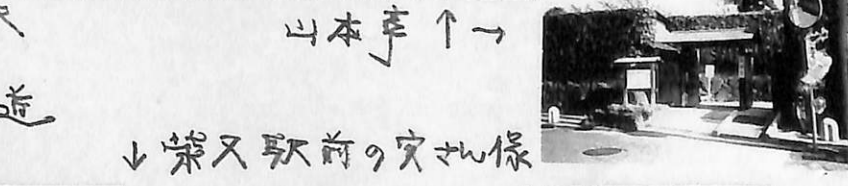 山本亭↑→
道
↓柴又駅前の寅さん像